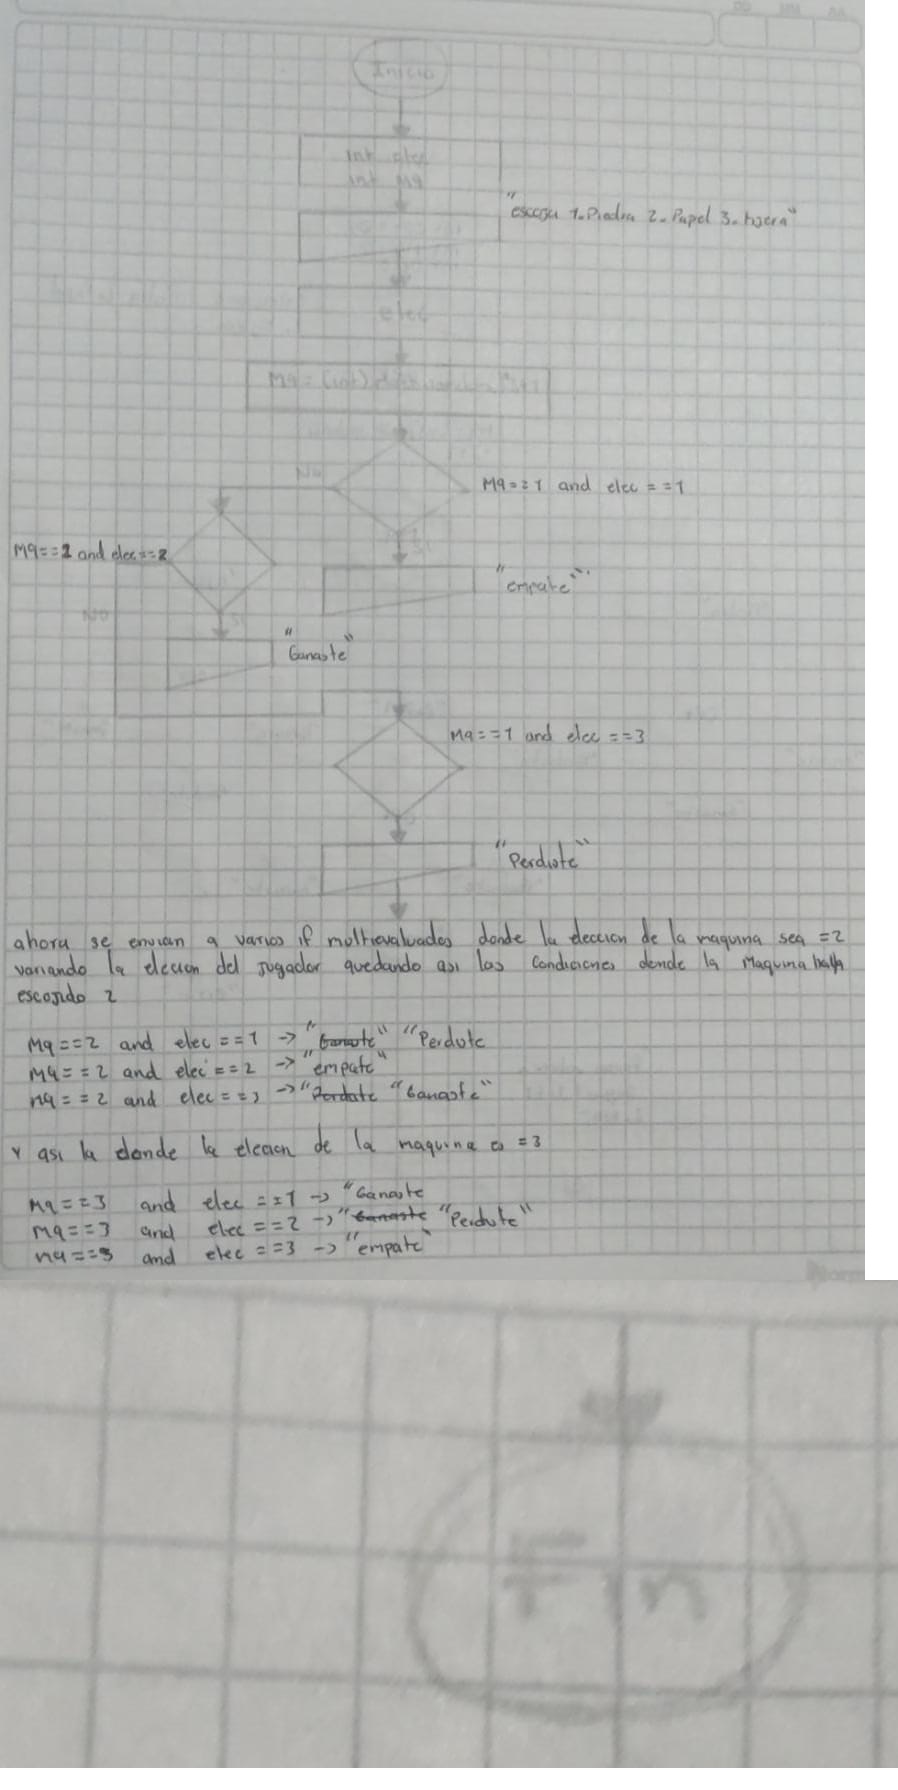 Inicio
int elec
int Mq
"escoja 1.Piedra 2.Papel 3.tijera"
elec
Mq = (int)
No
Mq==1 and elec ==1
Si
Mq==1 and elec==2
"empate"
No
Si
"Ganaste"
Mq==1 and elec ==3
"Perdiste"
ahora se envian a varios if multievaluados donde la eleccion de la maquina sea =2
variando la elecion del jugador quedando asi las condiciones donde la Maquina halla
escojido 2
Mq==2 and elec ==1 -> "Ganaste" "Perdiste
Mq==2 and elec ==2 -> "empate"
Mq==2 and elec ==3 -> "Perdiste "Ganaste"
Y asi la donde la elecion de la maquina es =3
Mq==3 and elec ==1 -> "Ganaste
Mq==3 and elec ==2 -> "Ganaste "Perdiste"
Mq==3 and elec ==3 -> "empate"
Fin